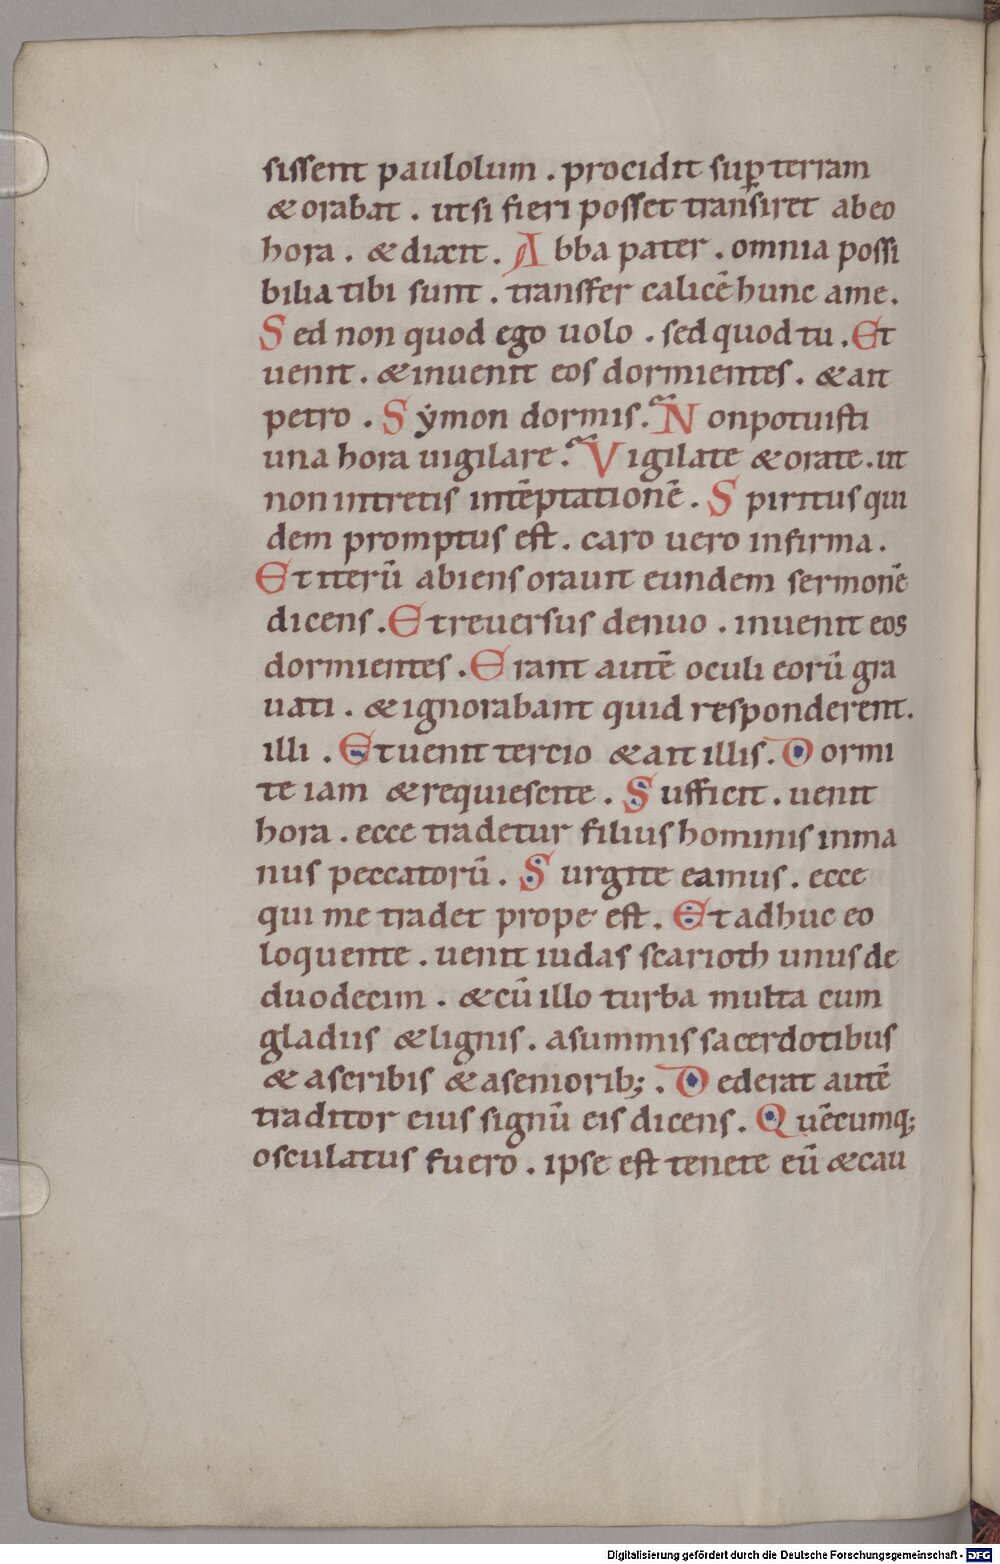 sissent paulolum . procidit suꝑ terram
& orabat . ut si fieri posset transiret ab eo
hora . & dixit . Abba pater . omnia possi
bilia tibi sunt . transfer calicē hunc a me .
Sed non quod ego uolo . sed quod tu . Et
uenit . & inuenit eos dormientes . & ait
petro . Sẏmon dormis . Non potuisti
una hora uigilare . Vigilate & orate . ut
non intretis in tēptationē . Spiritus qui
dem promptus est . caro uero infirma .
Et iterū abiens orauit eundem sermonē
dicens . Et reuersus denuo . inuenit eos
dormientes . Erant autē oculi eorū gra
uati . & ignorabant quid responderent .
illi . Et uenit tercio & ait illis . Dormi
te iam & requiescite . Sufficit . uenit
hora . ecce tradetur filius hominis in ma
nus peccatorū . Surgite eamus . ecce
qui me tradet prope est . Et adhuc eo
loquente . uenit iudas scarioth unus de
duodecim . & cū illo turba multa cum
gladiis & lignis . a summis sacerdotibus
& a scribis & a seniorib; . Dederat autē
traditor eius signū eis dicens . Quēcumq;
osculatus fuero . ipse est tenete eū & cau
Digitalisierung gefördert durch die Deutsche Forschungsgemeinschaft - DFG